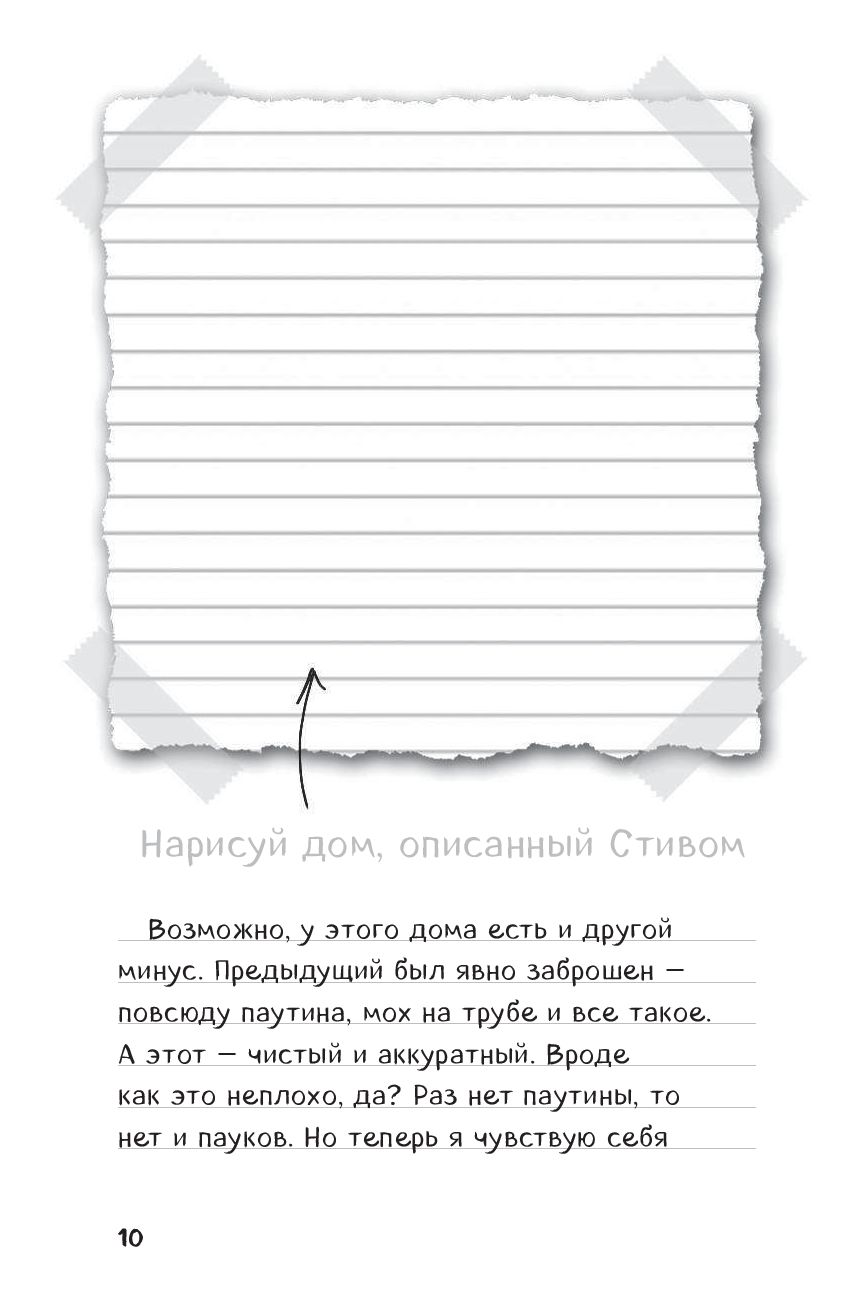 Нарисуй дом, описанный Стивом
Возможно, у этого дома есть и другой
минус. Предыдущий был явно заброшен –
повсюду паутина, мох на трубе и все такое.
А этот – чистый и аккуратный. Вроде
как это неплохо, да? Раз нет паутины, то
нет и пауков. Но теперь я чувствую себя
10